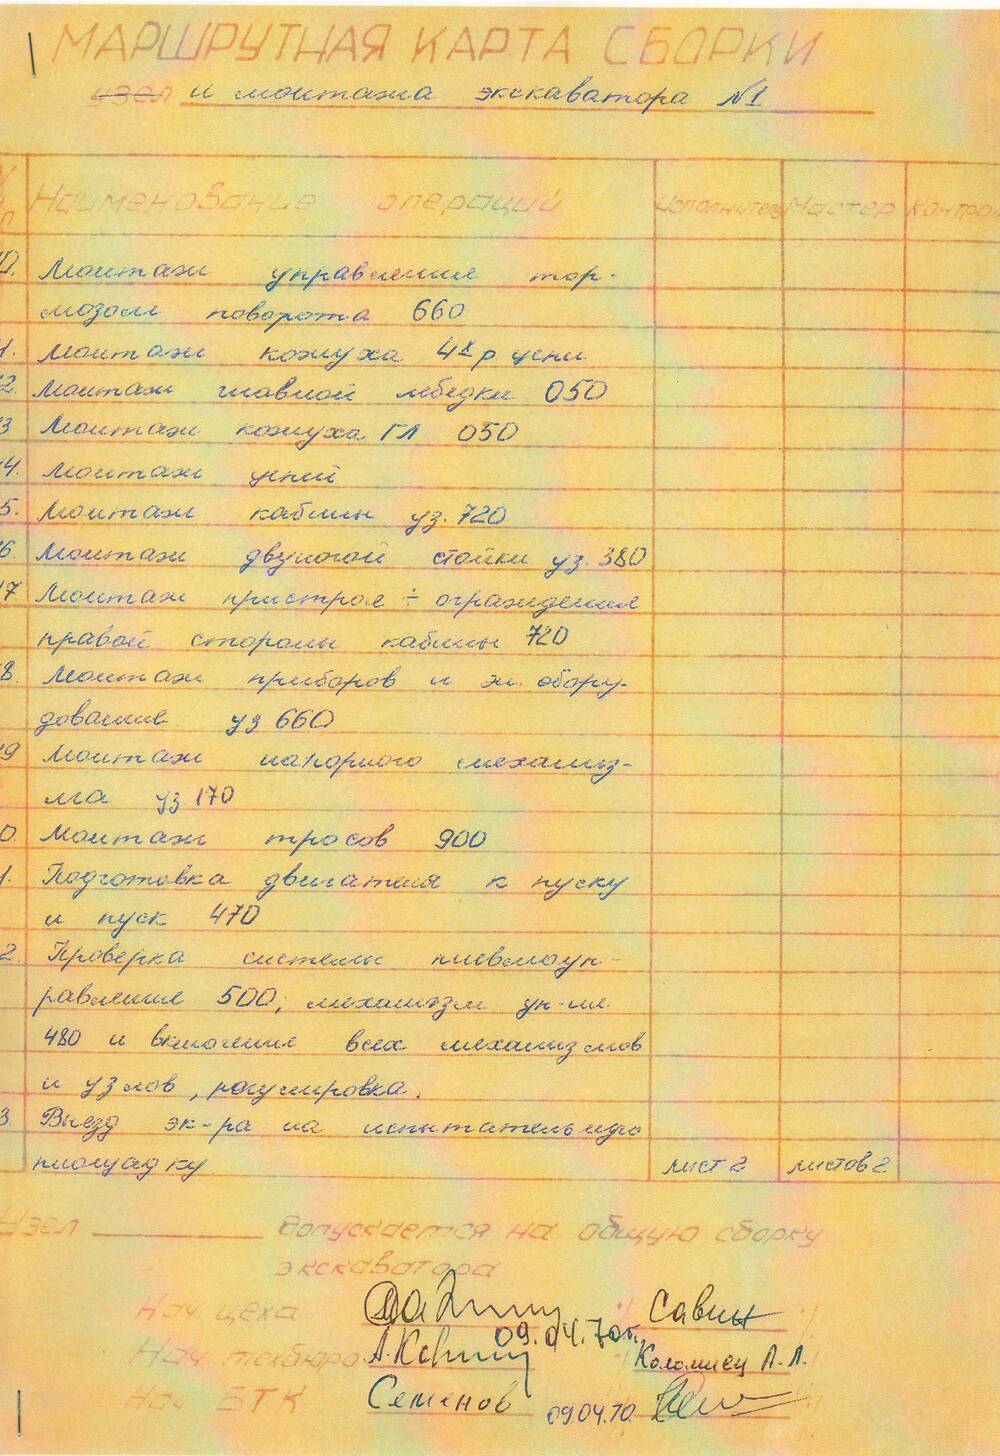 МАРШРУТНАЯ КАРТА СБОРКИ
узел и монтажа экскаватора №1
Наименование операций Исполнитель Мастер Контро
0. Монтаж управления тор-
мозом поворота 660
1. Монтаж кожуха 4х р цепи
2. Монтаж главной лебедки 050
3 Монтаж кожуха ГЛ 050
4. Монтаж
5. Монтаж кабины уз. 720
6. Монтаж двуногой стойки уз. 380
7 Монтаж пристроя ÷ ограждения
правой стороны кабины 720
8. Монтаж приборов и эл. обору-
дование уз 660
9 Монтаж напорного механиз-
ма уз 170
0. Монтаж тросов 900
1. Подготовка двигателя к пуску
и пуск 470
2. Проверка системы пневмоуп-
равления 500; механизм уп-ия
480 и включение всех механизмов
и узлов, регулировка.
3 Выезд эк-ра на испытательную
площадку. лист 2 листов 2
Узел ________ допускается на общую сборку
экскаватора
Нач. цеха Савин
09.04.70г.
Нач. техбюро Коломиец Л. Л.
Нач БТК Семенов 09.04.70